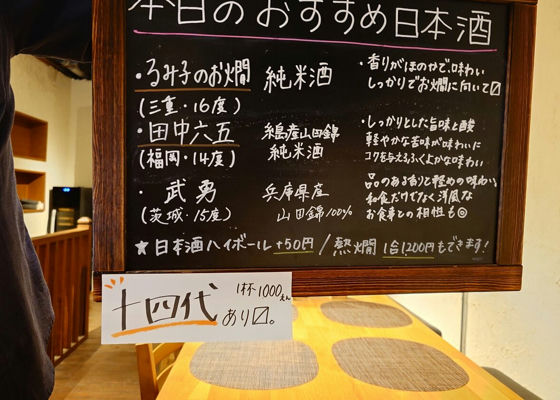 本日のおすすめ日本酒
・るみ子のお燗 純米酒
(三重・16度)
・香りがほのかで味わい
しっかりでお燗に向いて〼
・田中六五 糸島産山田錦
純米酒
(福岡・14度)
・しっかりとした旨味と酸
軽やかな苦味が味わいに
コクを与えるふくよかな味わい
・武勇 兵庫県産
山田錦100%
(茨城・15度)
品のある香りと軽めの味わい
和食だけでなく洋風な
お食事との相性も◎
★日本酒ハイボール+50円/熱燗 1合1,200円もできます!
十四代 1杯1000えん
あり〼。